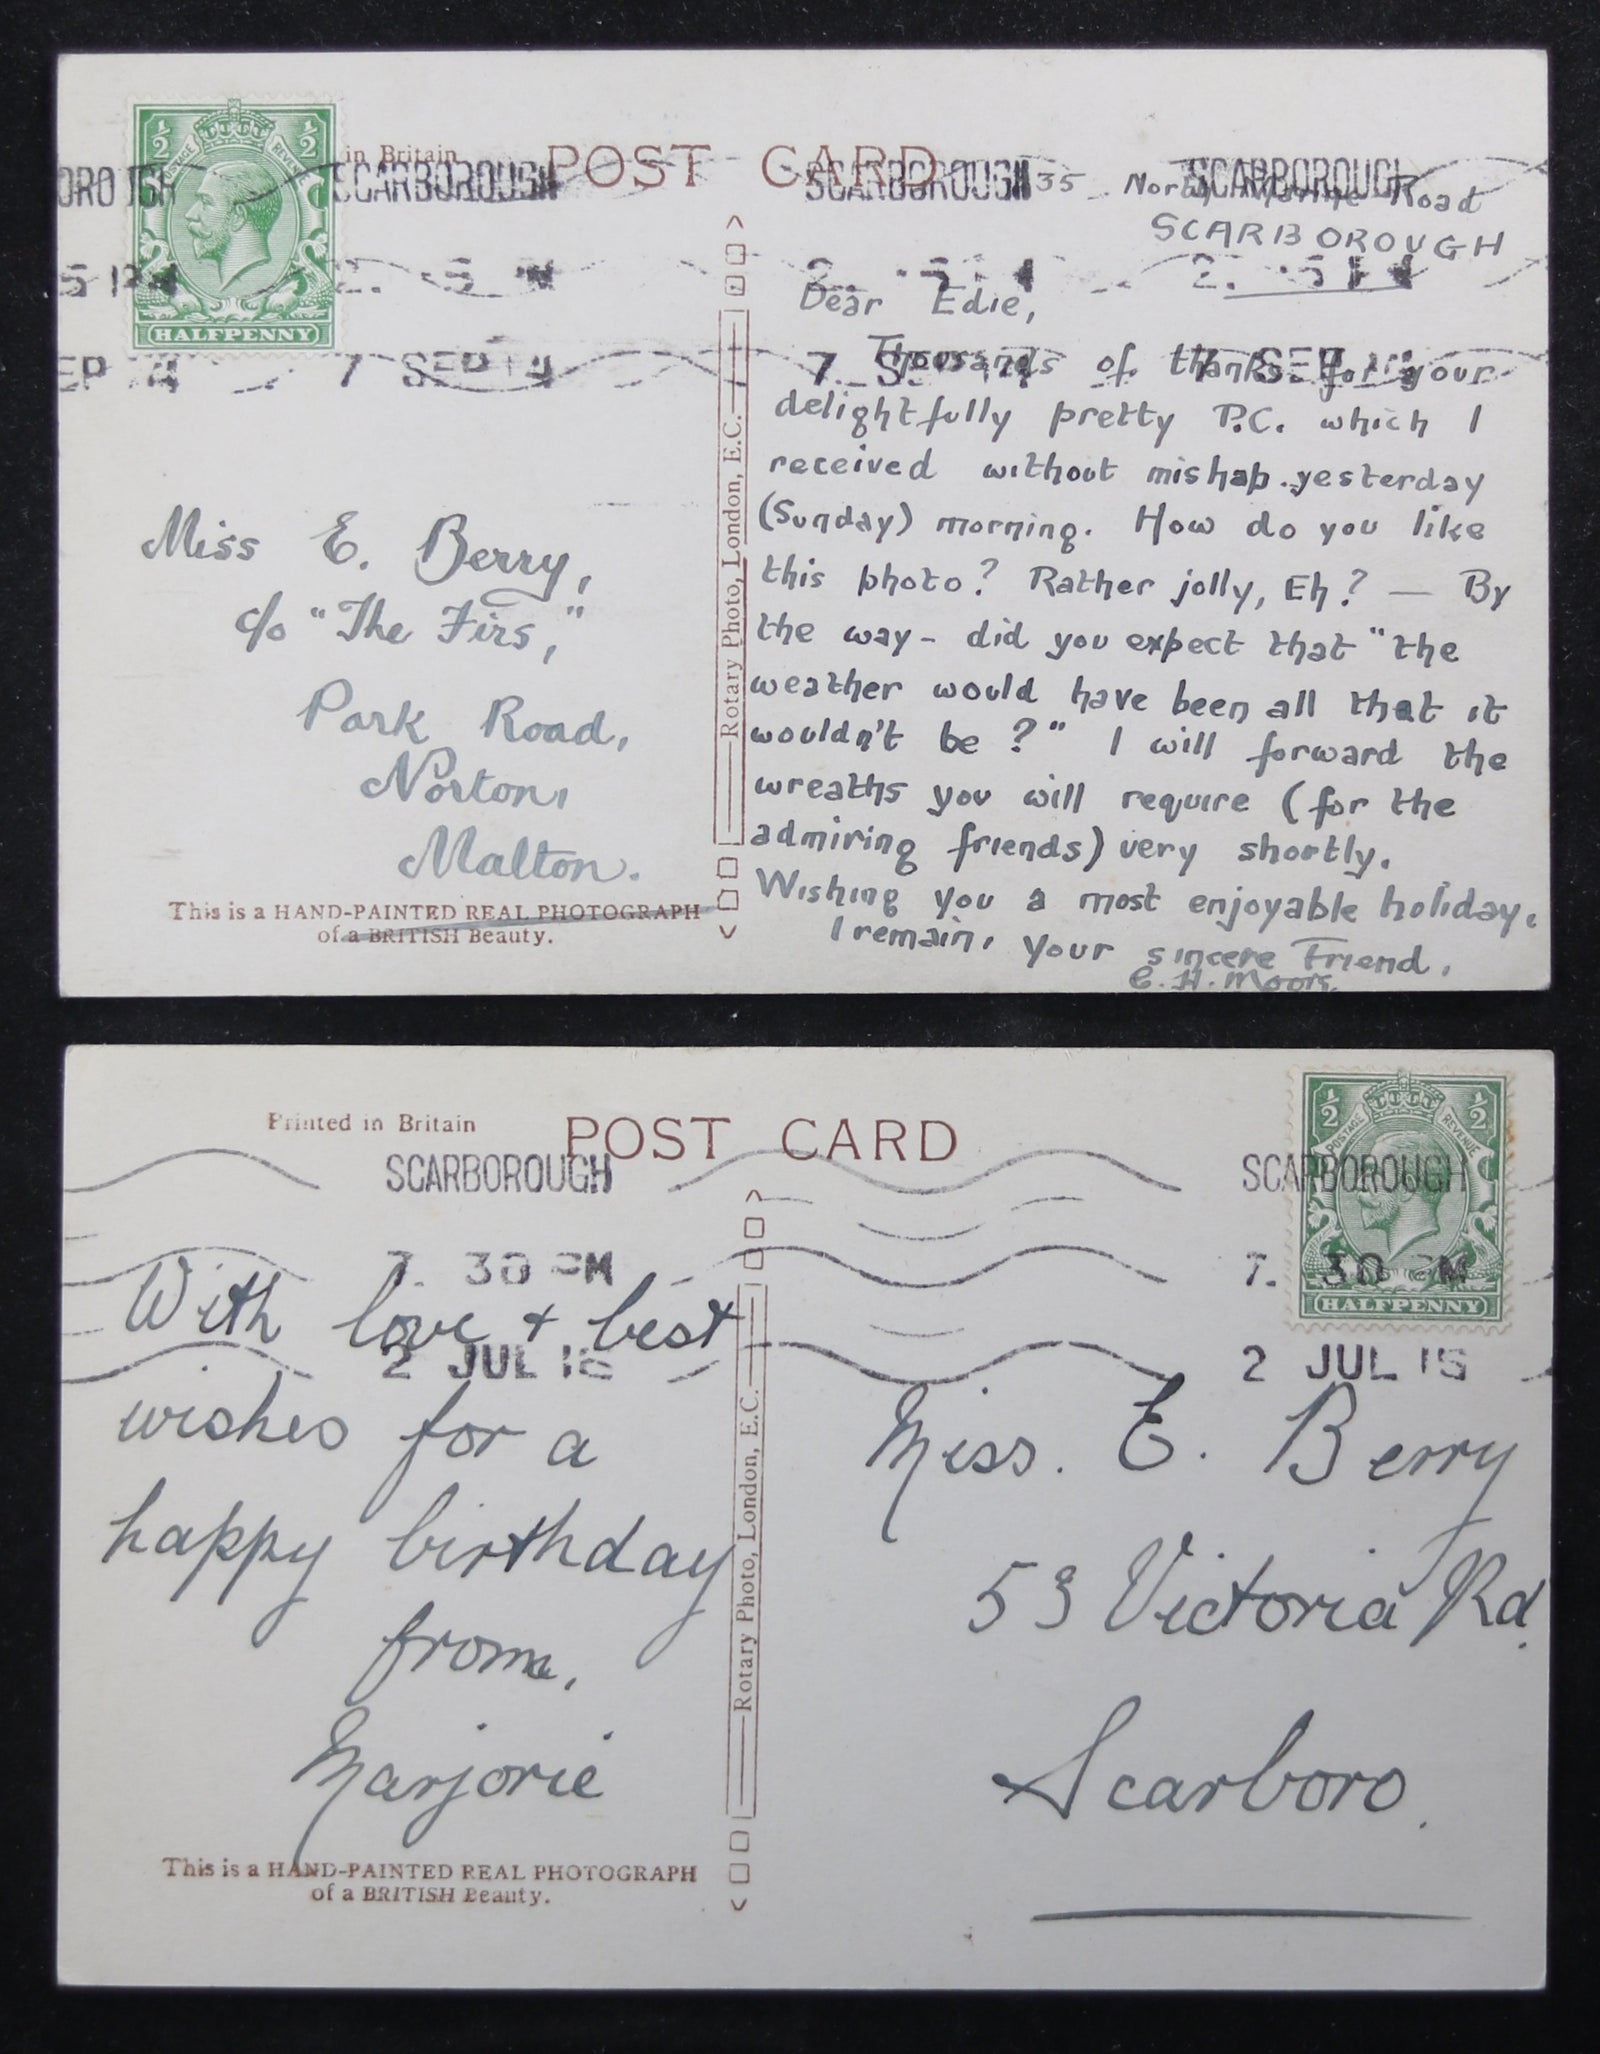 ½ ½
POSTAGE REVENUE
HALFPENNY
in Britain
POST CARD
SCARBOROUGH SCARBOROUGH SCARBOROUGH
7 SEP 14
35 North Marine Road
SCARBOROUGH
Dear Edie,
Thousands of thanks for your
delightfully pretty P.C. which I
received without mishap yesterday
(Sunday) morning. How do you like
this photo? Rather jolly, Eh? — By
the way - did you expect that "the
weather would have been all that it
wouldn't be?" I will forward the
wreaths you will require (for the
admiring friends) very shortly.
Wishing you a most enjoyable holiday.
I remain, your sincere Friend,
Miss E. Berry,
c/o "The Firs,"
Park Road,
Norton,
Malton.
Rotary Photo, London, E.C.
This is a HAND-PAINTED REAL PHOTOGRAPH
of a BRITISH Beauty.
Printed in Britain
POST CARD
½ ½
POSTAGE REVENUE
HALFPENNY
SCARBOROUGH SCARBOROUGH
7. 30 PM 7. 30 PM
2 JUL 15
With love + best
wishes for a
happy birthday
from,
Marjorie
Rotary Photo, London, E.C.
Miss. E. Berry
53 Victoria Rd.
Scarboro.
This is a HAND-PAINTED REAL PHOTOGRAPH
of a BRITISH Beauty.